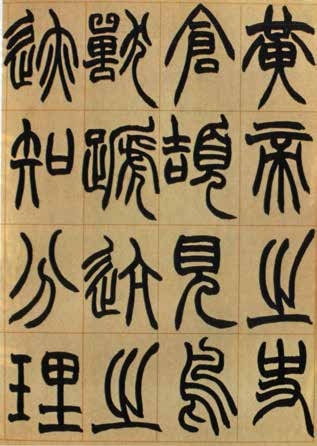 黃帝之史
倉頡見鳥
獸蹏迒之
迹知分理